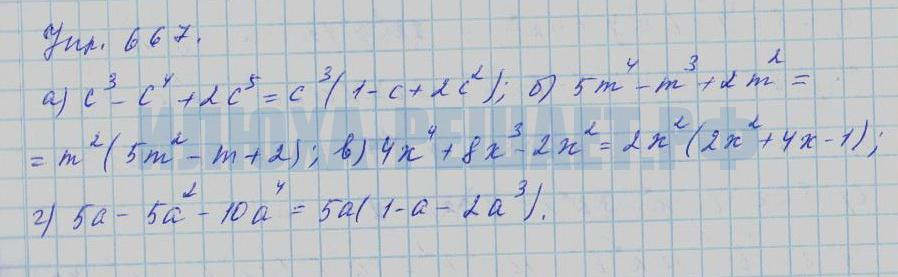 Упр. 667.
а) c³ - c⁴ + 2c⁵ = c³(1 - c + 2c²); б) 5m⁴ - m³ + 2m² =
= m²(5m² - m + 2); в) 4x⁴ + 8x³ - 2x² = 2x²(2x² + 4x - 1);
г) 5a - 5a² - 10a⁴ = 5a(1 - a - 2a³).
ИЛЮХА-РЕШАЕТ.РФ